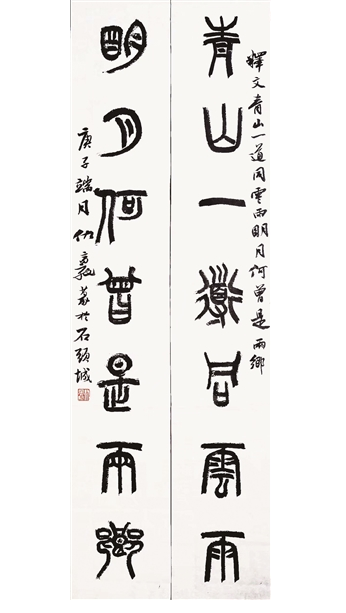 釋文青山一道同雲雨明月何曾是兩鄉
青山一道同雲雨
明月何曾是兩鄉
庚子端月篆於石頭城